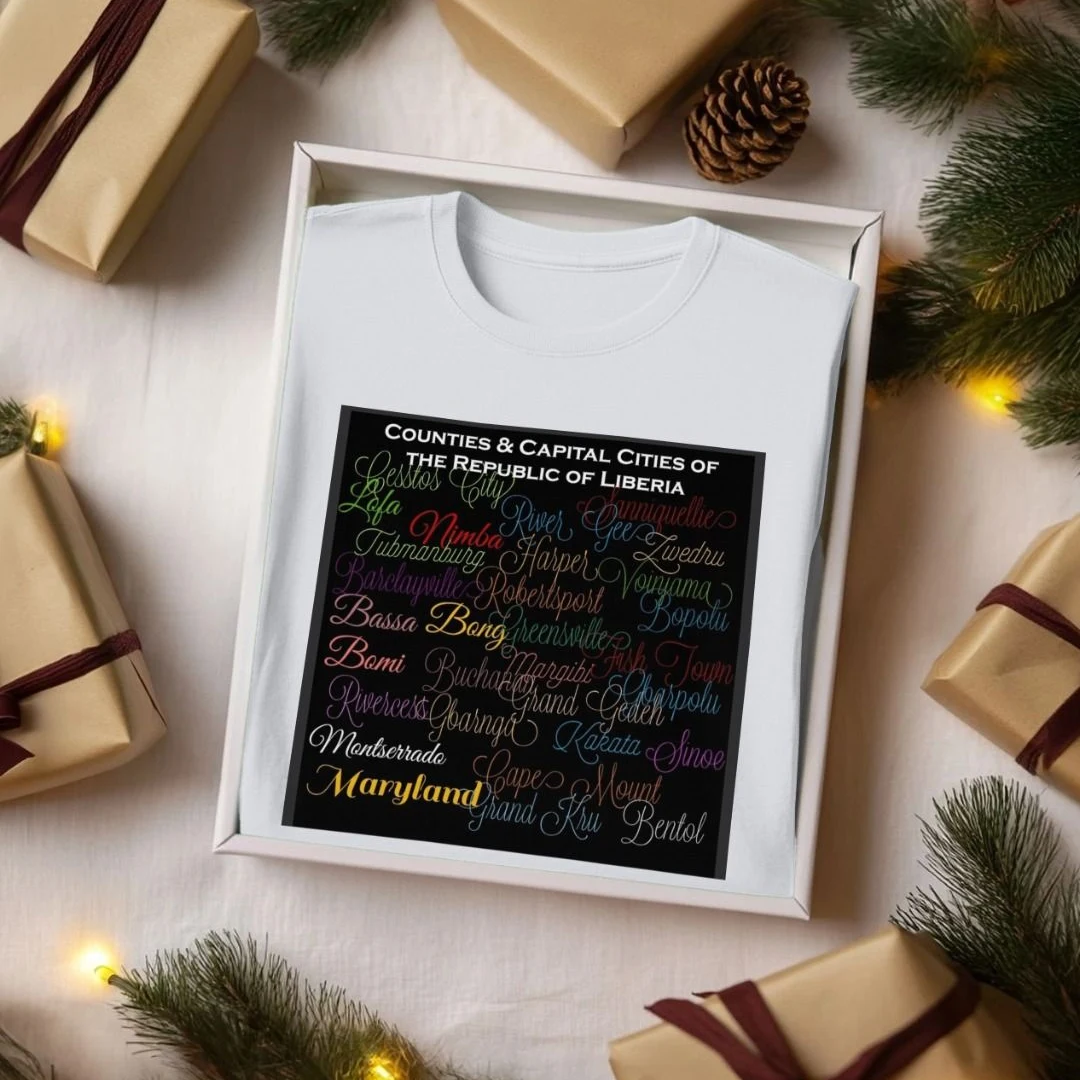 COUNTIES & CAPITAL CITIES OF
THE REPUBLIC OF LIBERIA
Cesstos City
Lofa
Sanniquellie
Nimba River Gee
Tubmanburg Harper Zwedru
Barclayville Robertsport Voinjama
Bopolu
Bassa Bong Greensville
Bomi Buchanan Margibi Fish Town
Grand Gedeh Gbarpolu
Rivercess Gbarnga
Montserrado Kakata Sinoe
Maryland Cape Mount
Grand Kru Bentol